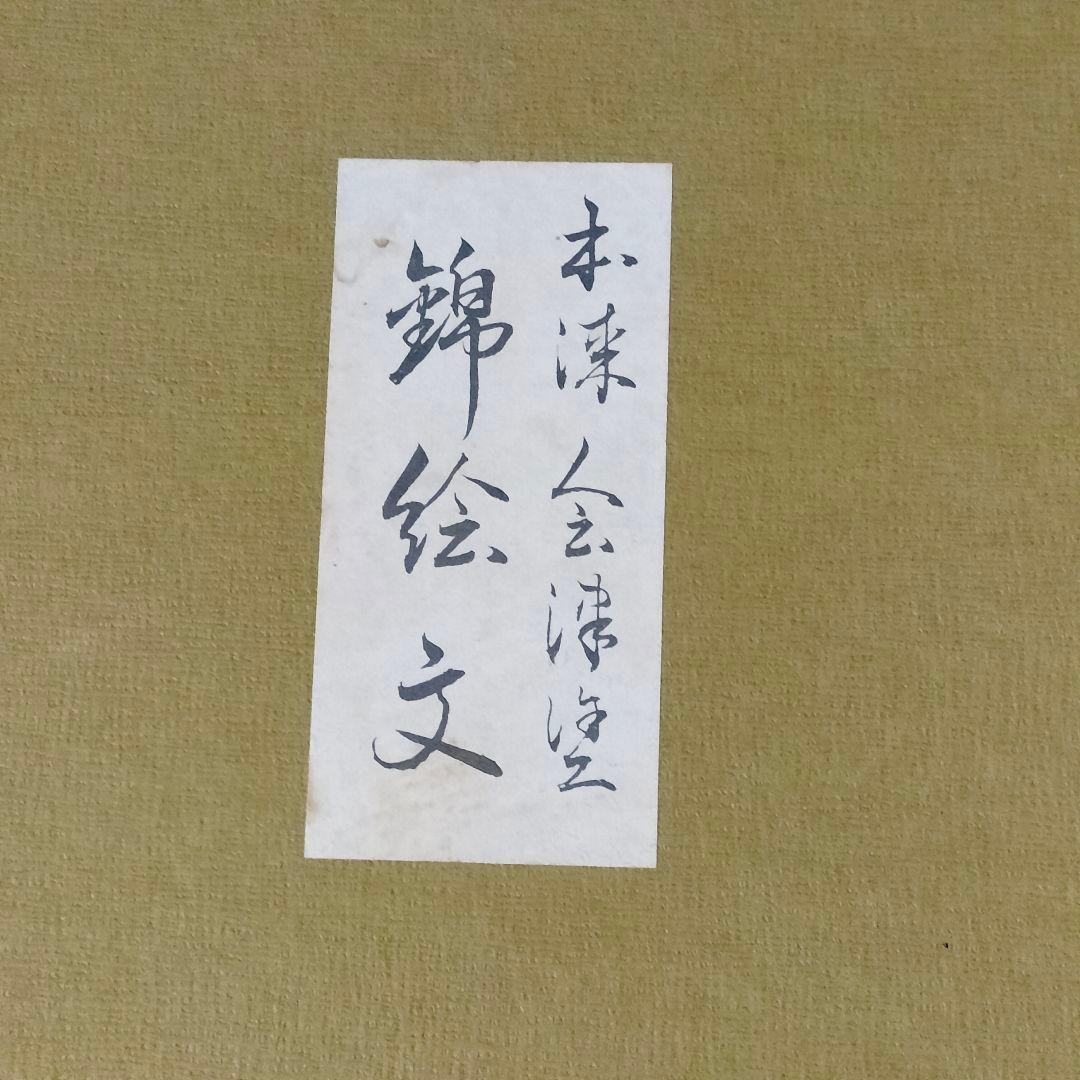 本漆 会津塗
錦絵文